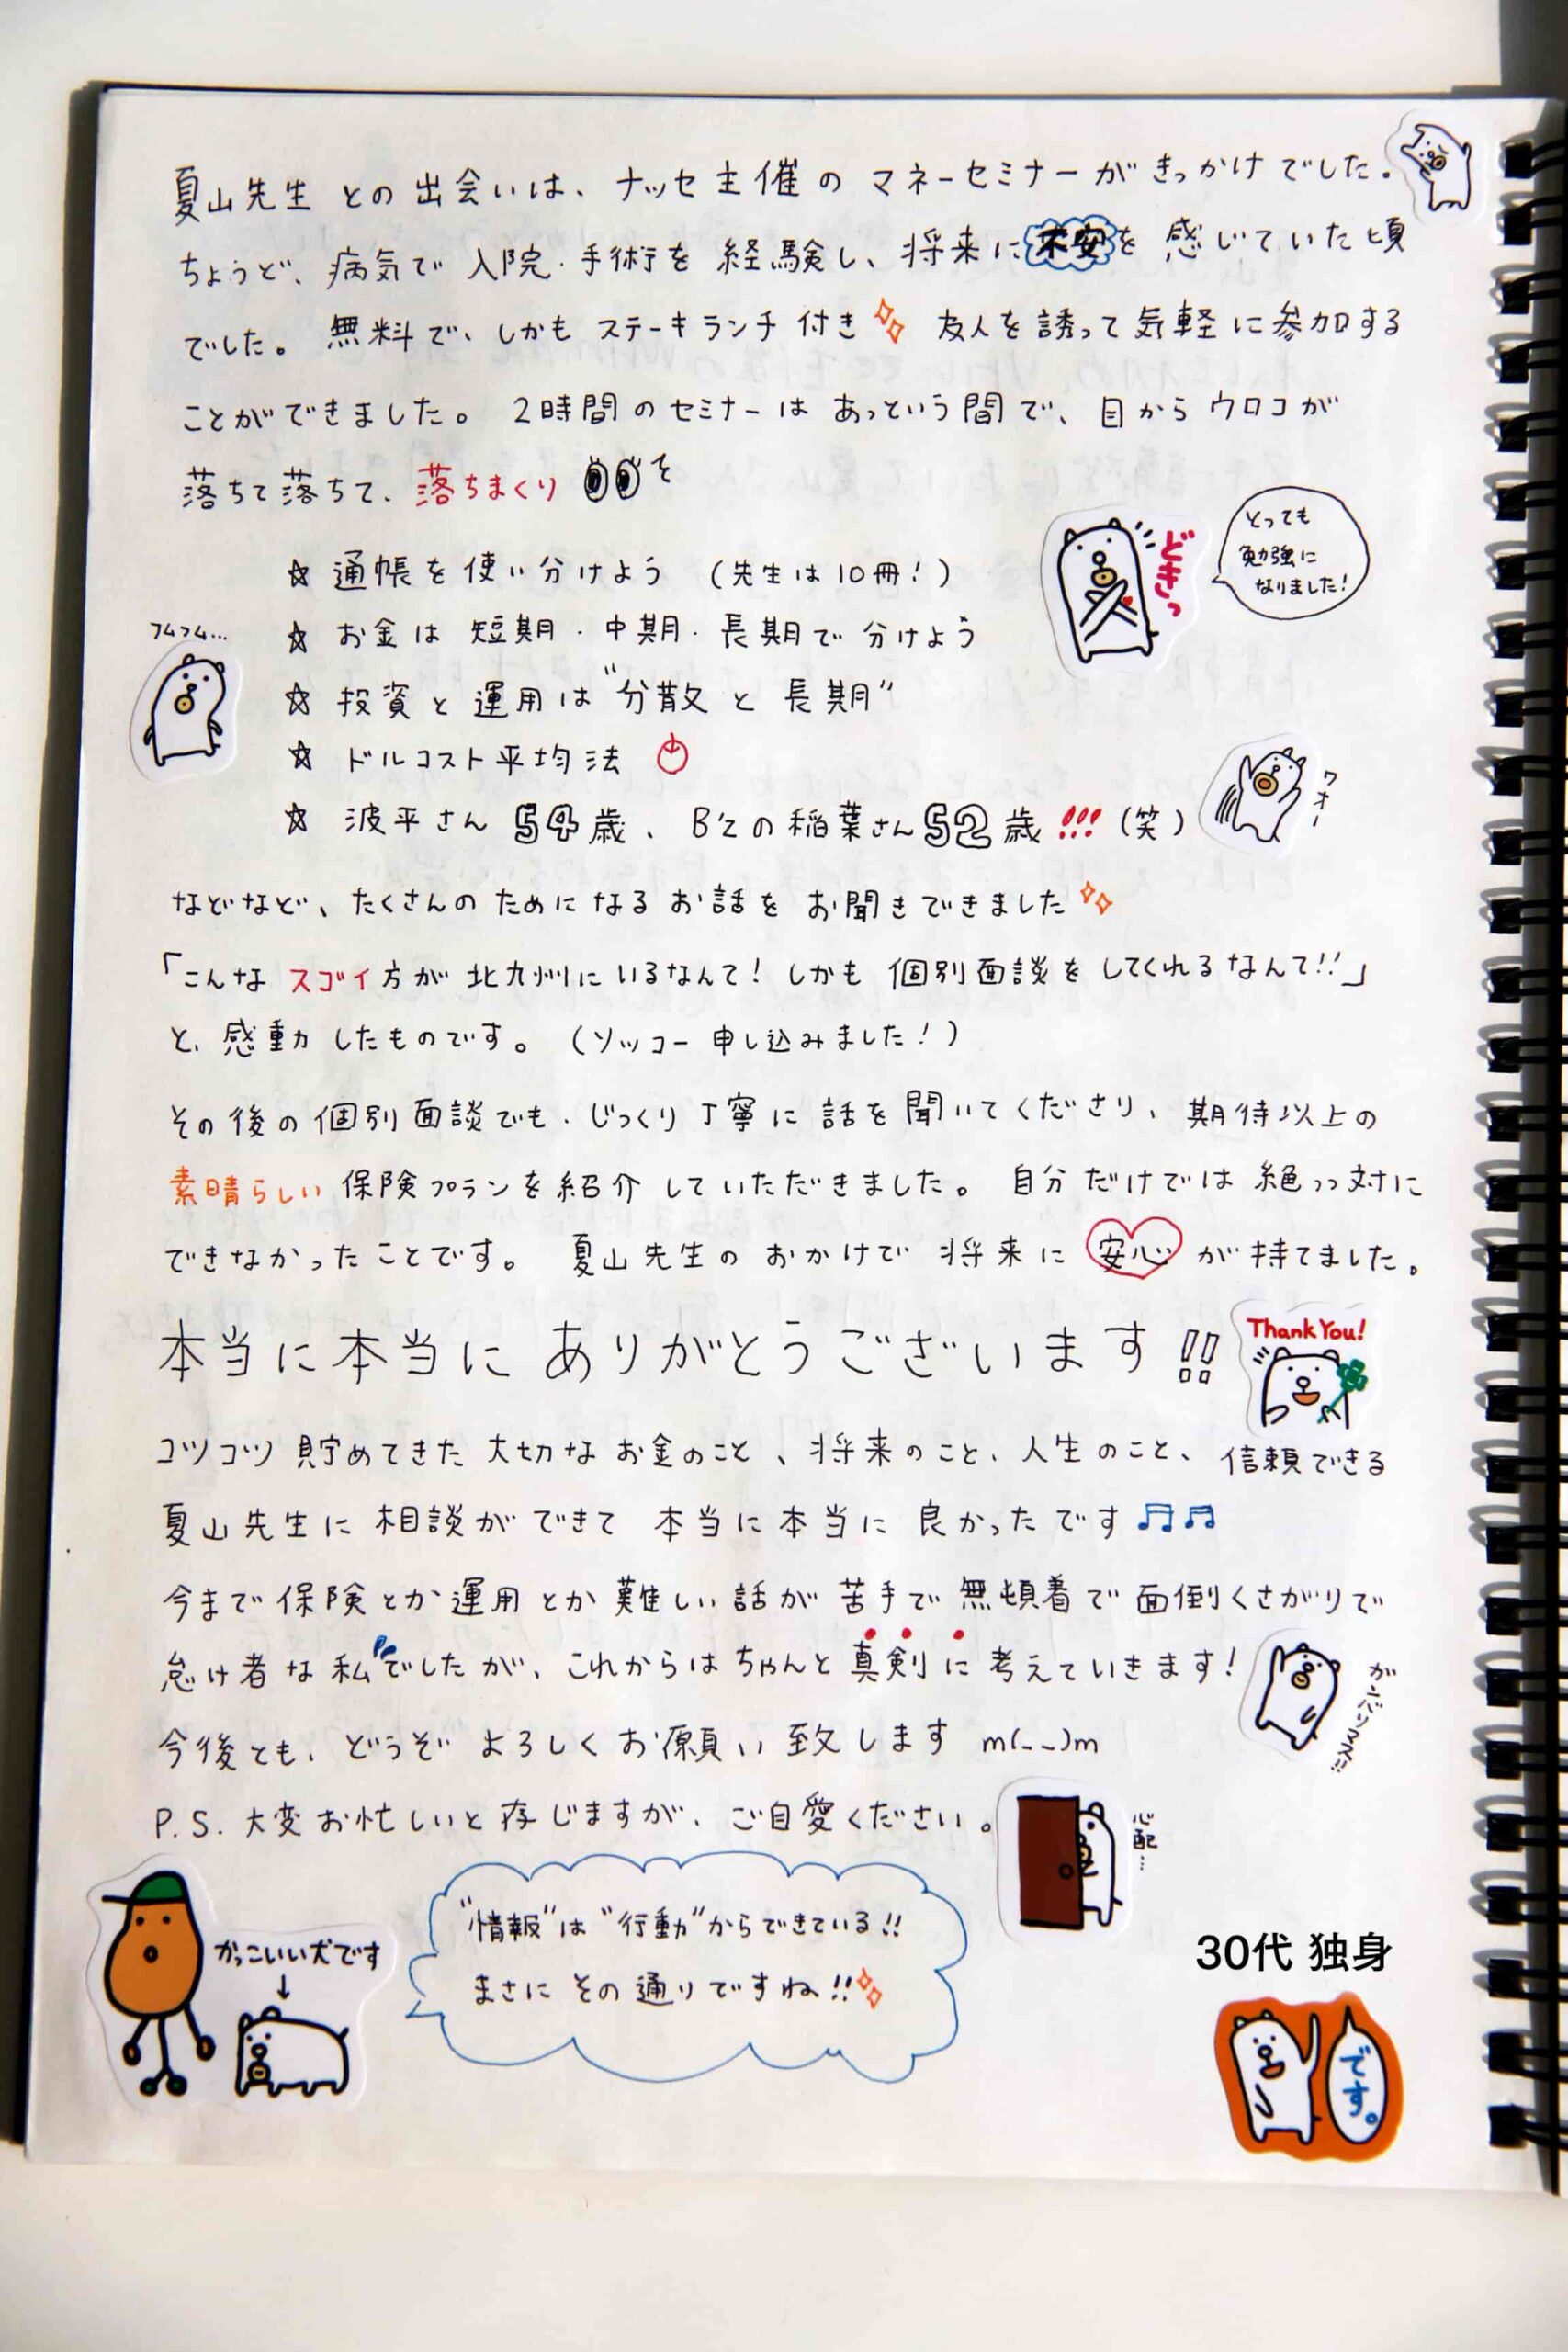 夏山先生との出会いは、ナッセ主催のマネーセミナーがきっかけでした。
ちょうど、病気で入院・手術を経験し、将来に不安を感じていた頃
でした。無料で、しかもステーキランチ付き 友人を誘って気軽に参加する
ことができました。2時間のセミナーはあっという間で、目からウロコが
落ちて落ちて、落ちまくり
とっても
勉強に
なりました!
どきっ
☆ 通帳を使い分けよう (先生は10冊!)
☆ お金は短期・中期・長期で分けよう
フムフム…
☆ 投資と運用は"分散と長期"
☆ ドルコスト平均法
☆ 波平さん54歳、B'zの稲葉さん52歳!!!(笑)
ワオー
などなど、たくさんのためになるお話をお聞きできました
「こんなスゴイ方が北九州にいるなんて!しかも個別面談をしてくれるなんて!!」
と、感動したものです。(ソッコー申し込みました!)
その後の個別面談でも、じっくり丁寧に話を聞いてくださり、期待以上の
素晴らしい保険プランを紹介していただきました。自分だけでは絶っっ対に
できなかったことです。夏山先生のおかげで将来に安心が持てました。
本当に本当にありがとうございます!!
Thank You!
コツコツ貯めてきた大切なお金のこと、将来のこと、人生のこと、信頼できる
夏山先生に相談ができて本当に本当に良かったです♫♫
今まで保険とか運用とか難しい話が苦手で無頓着で面倒くさがりで
怠け者な私でしたが、これからはちゃんと真剣に考えていきます!
ガンバリマス!!
今後とも、どうぞよろしくお願い致します m(_ _)m
P.S.大変お忙しいと存じますが、ご自愛ください。
心配…
"情報"は"行動"からできている!!
まさにその通りですね!!
かっこいい犬です
↓
30代 独身
です。